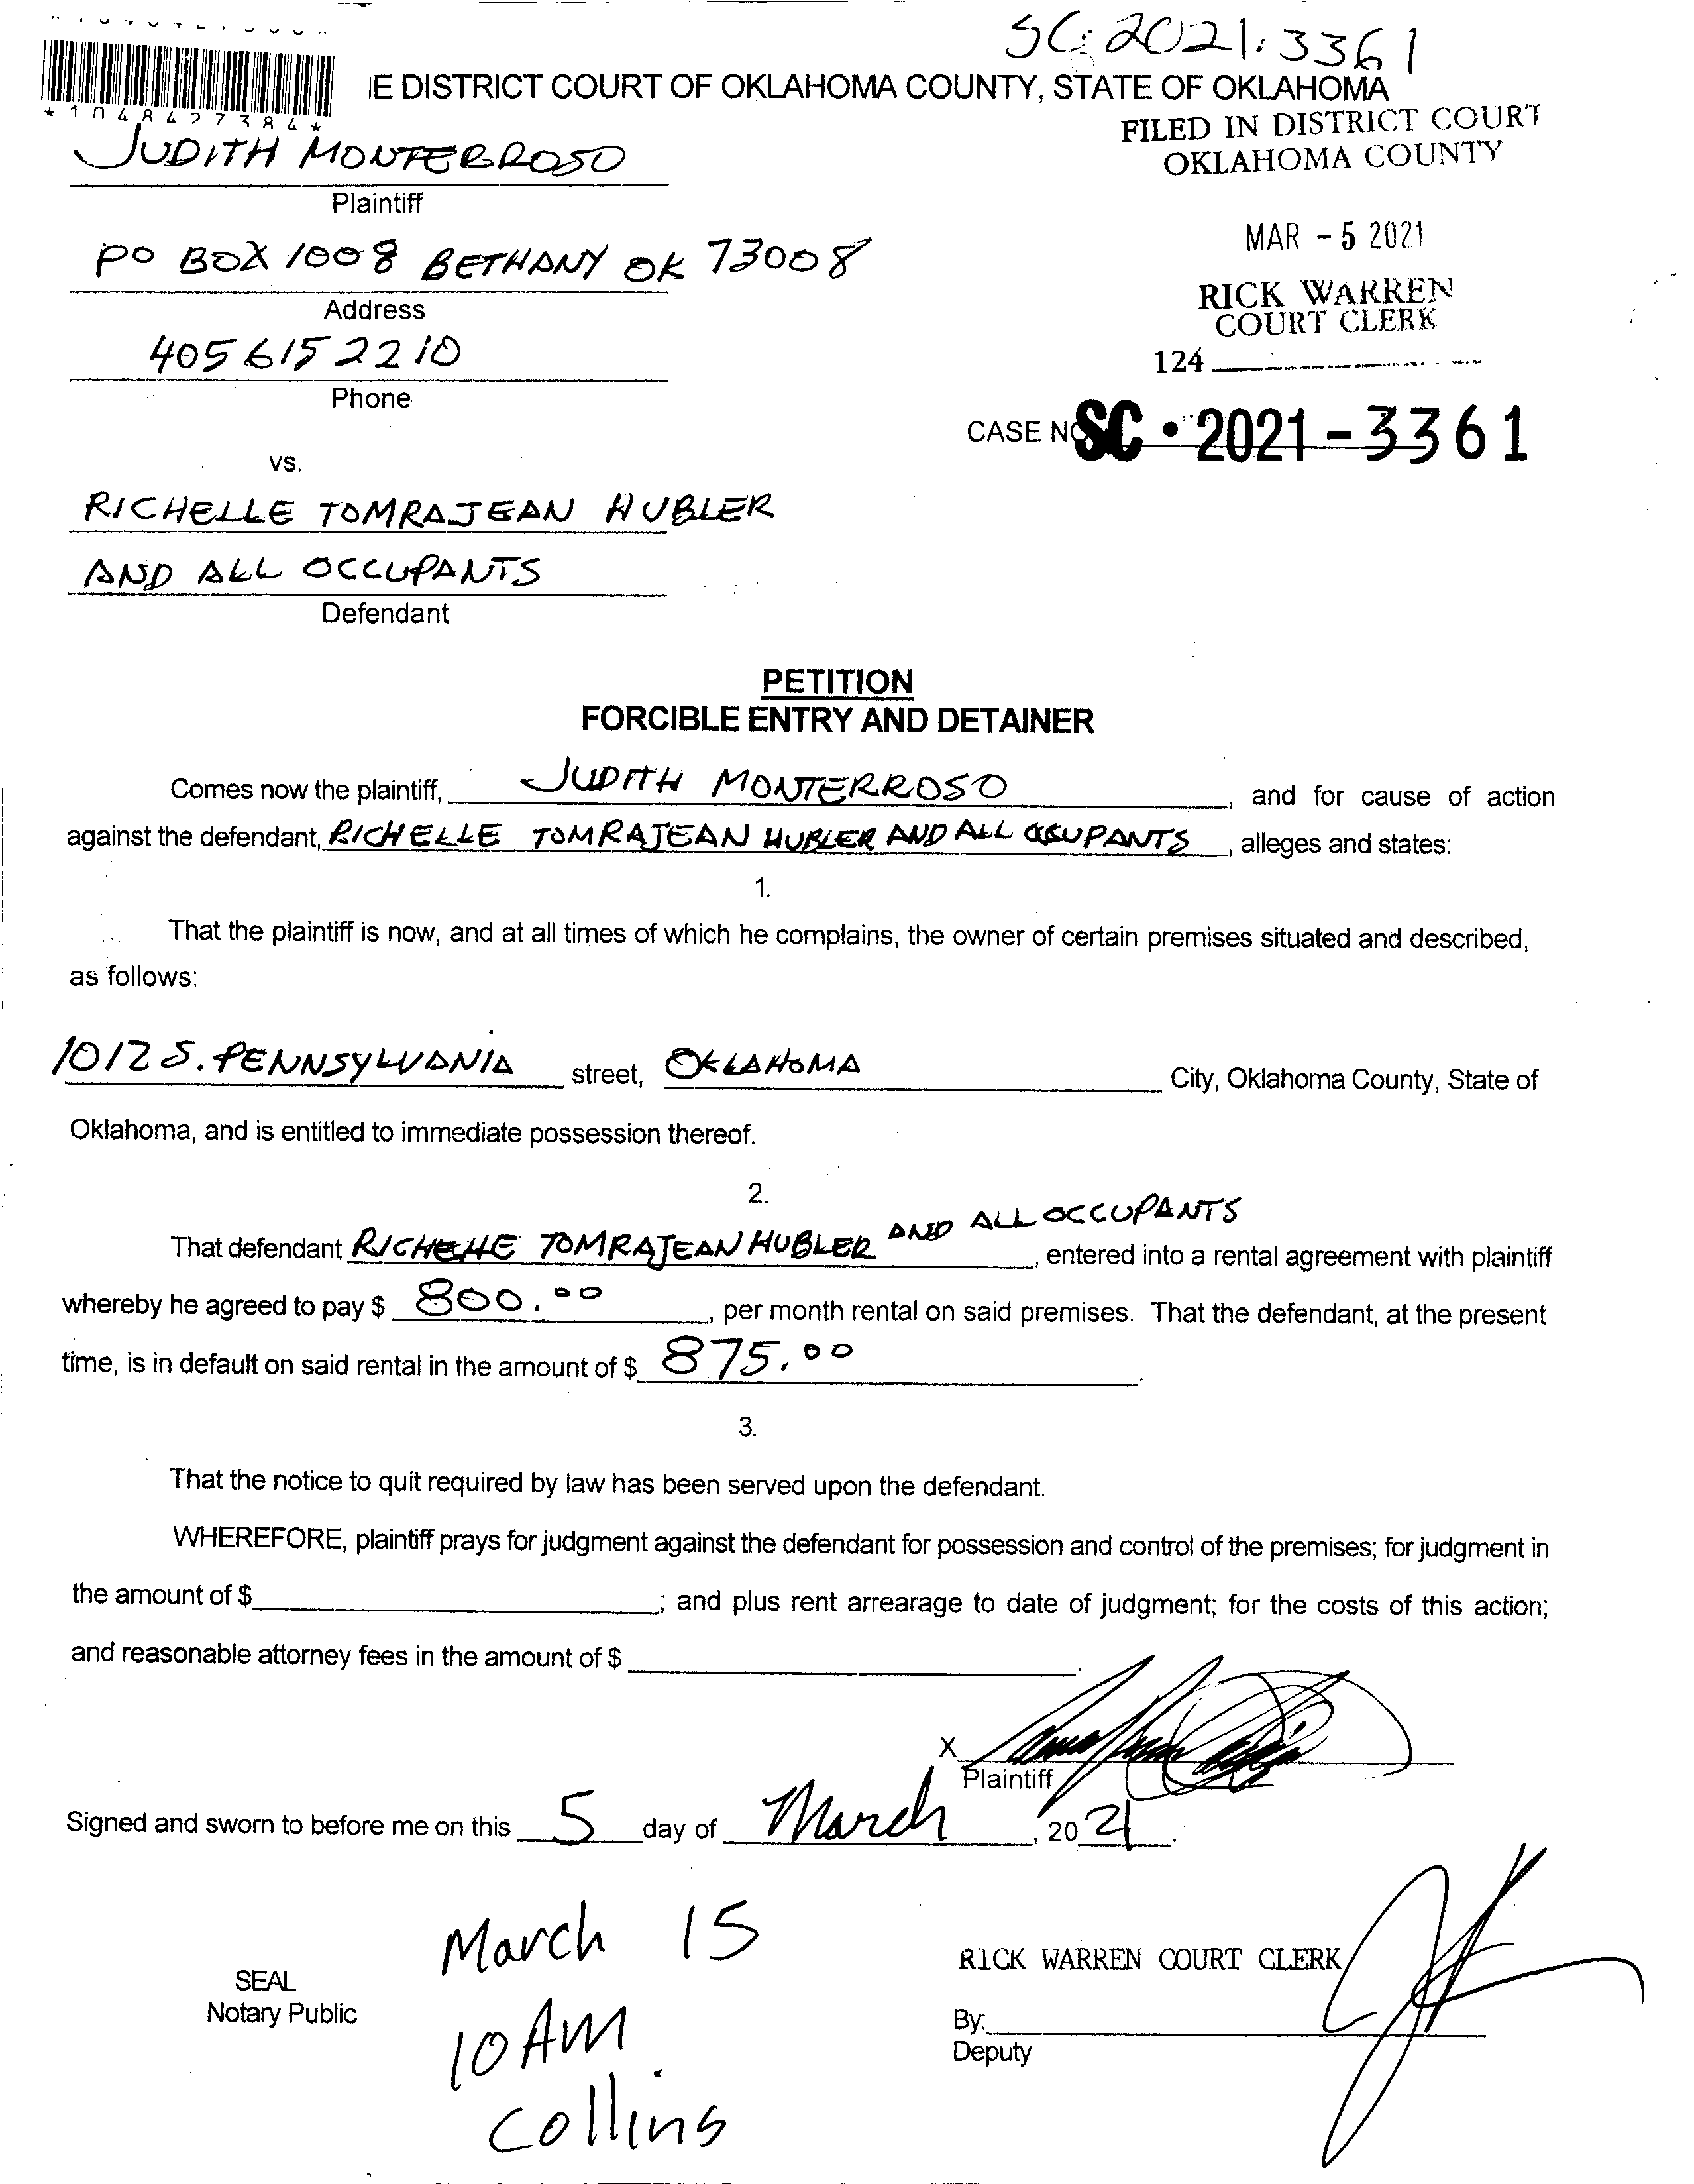 SC. 2021. 3361
E DISTRICT COURT OF OKLAHOMA COUNTY, STATE OF OKLAHOMA
*1048427384*
FILED IN DISTRICT COURT
OKLAHOMA COUNTY
JUDITH MONTERROSO
Plaintiff
MAR - 5 2021
PO BOX 1008 BETHANY OK 73008
Address
RICK WARREN
COURT CLERK
4056152210
124
Phone
CASE NO SC · 2021 - 3361
vs.
RICHELLE TOMRAJEAN HUBLER
AND ALL OCCUPANTS
Defendant
PETITION
FORCIBLE ENTRY AND DETAINER
Comes now the plaintiff, JUDITH MONTERROSO, and for cause of action
against the defendant, RICHELLE TOMRAJEAN HUBLER AND ALL OCCUPANTS, alleges and states:
1.
That the plaintiff is now, and at all times of which he complains, the owner of certain premises situated and described,
as follows:
1012 S. PENNSYLVANIA street, OKLAHOMA City, Oklahoma County, State of
Oklahoma, and is entitled to immediate possession thereof.
2.
That defendant RICHELLE TOMRAJEAN HUBLER AND ALL OCCUPANTS, entered into a rental agreement with plaintiff
whereby he agreed to pay $ 800.00, per month rental on said premises. That the defendant, at the present
time, is in default on said rental in the amount of $ 875.00.
3.
That the notice to quit required by law has been served upon the defendant.
WHEREFORE, plaintiff prays for judgment against the defendant for possession and control of the premises; for judgment in
the amount of $ ; and plus rent arrearage to date of judgment; for the costs of this action;
and reasonable attorney fees in the amount of $ .
X
Plaintiff
Signed and sworn to before me on this 5 day of March, 2021.
March 15
RICK WARREN COURT CLERK
SEAL
Notary Public
10 AM
By:
Deputy
Collins